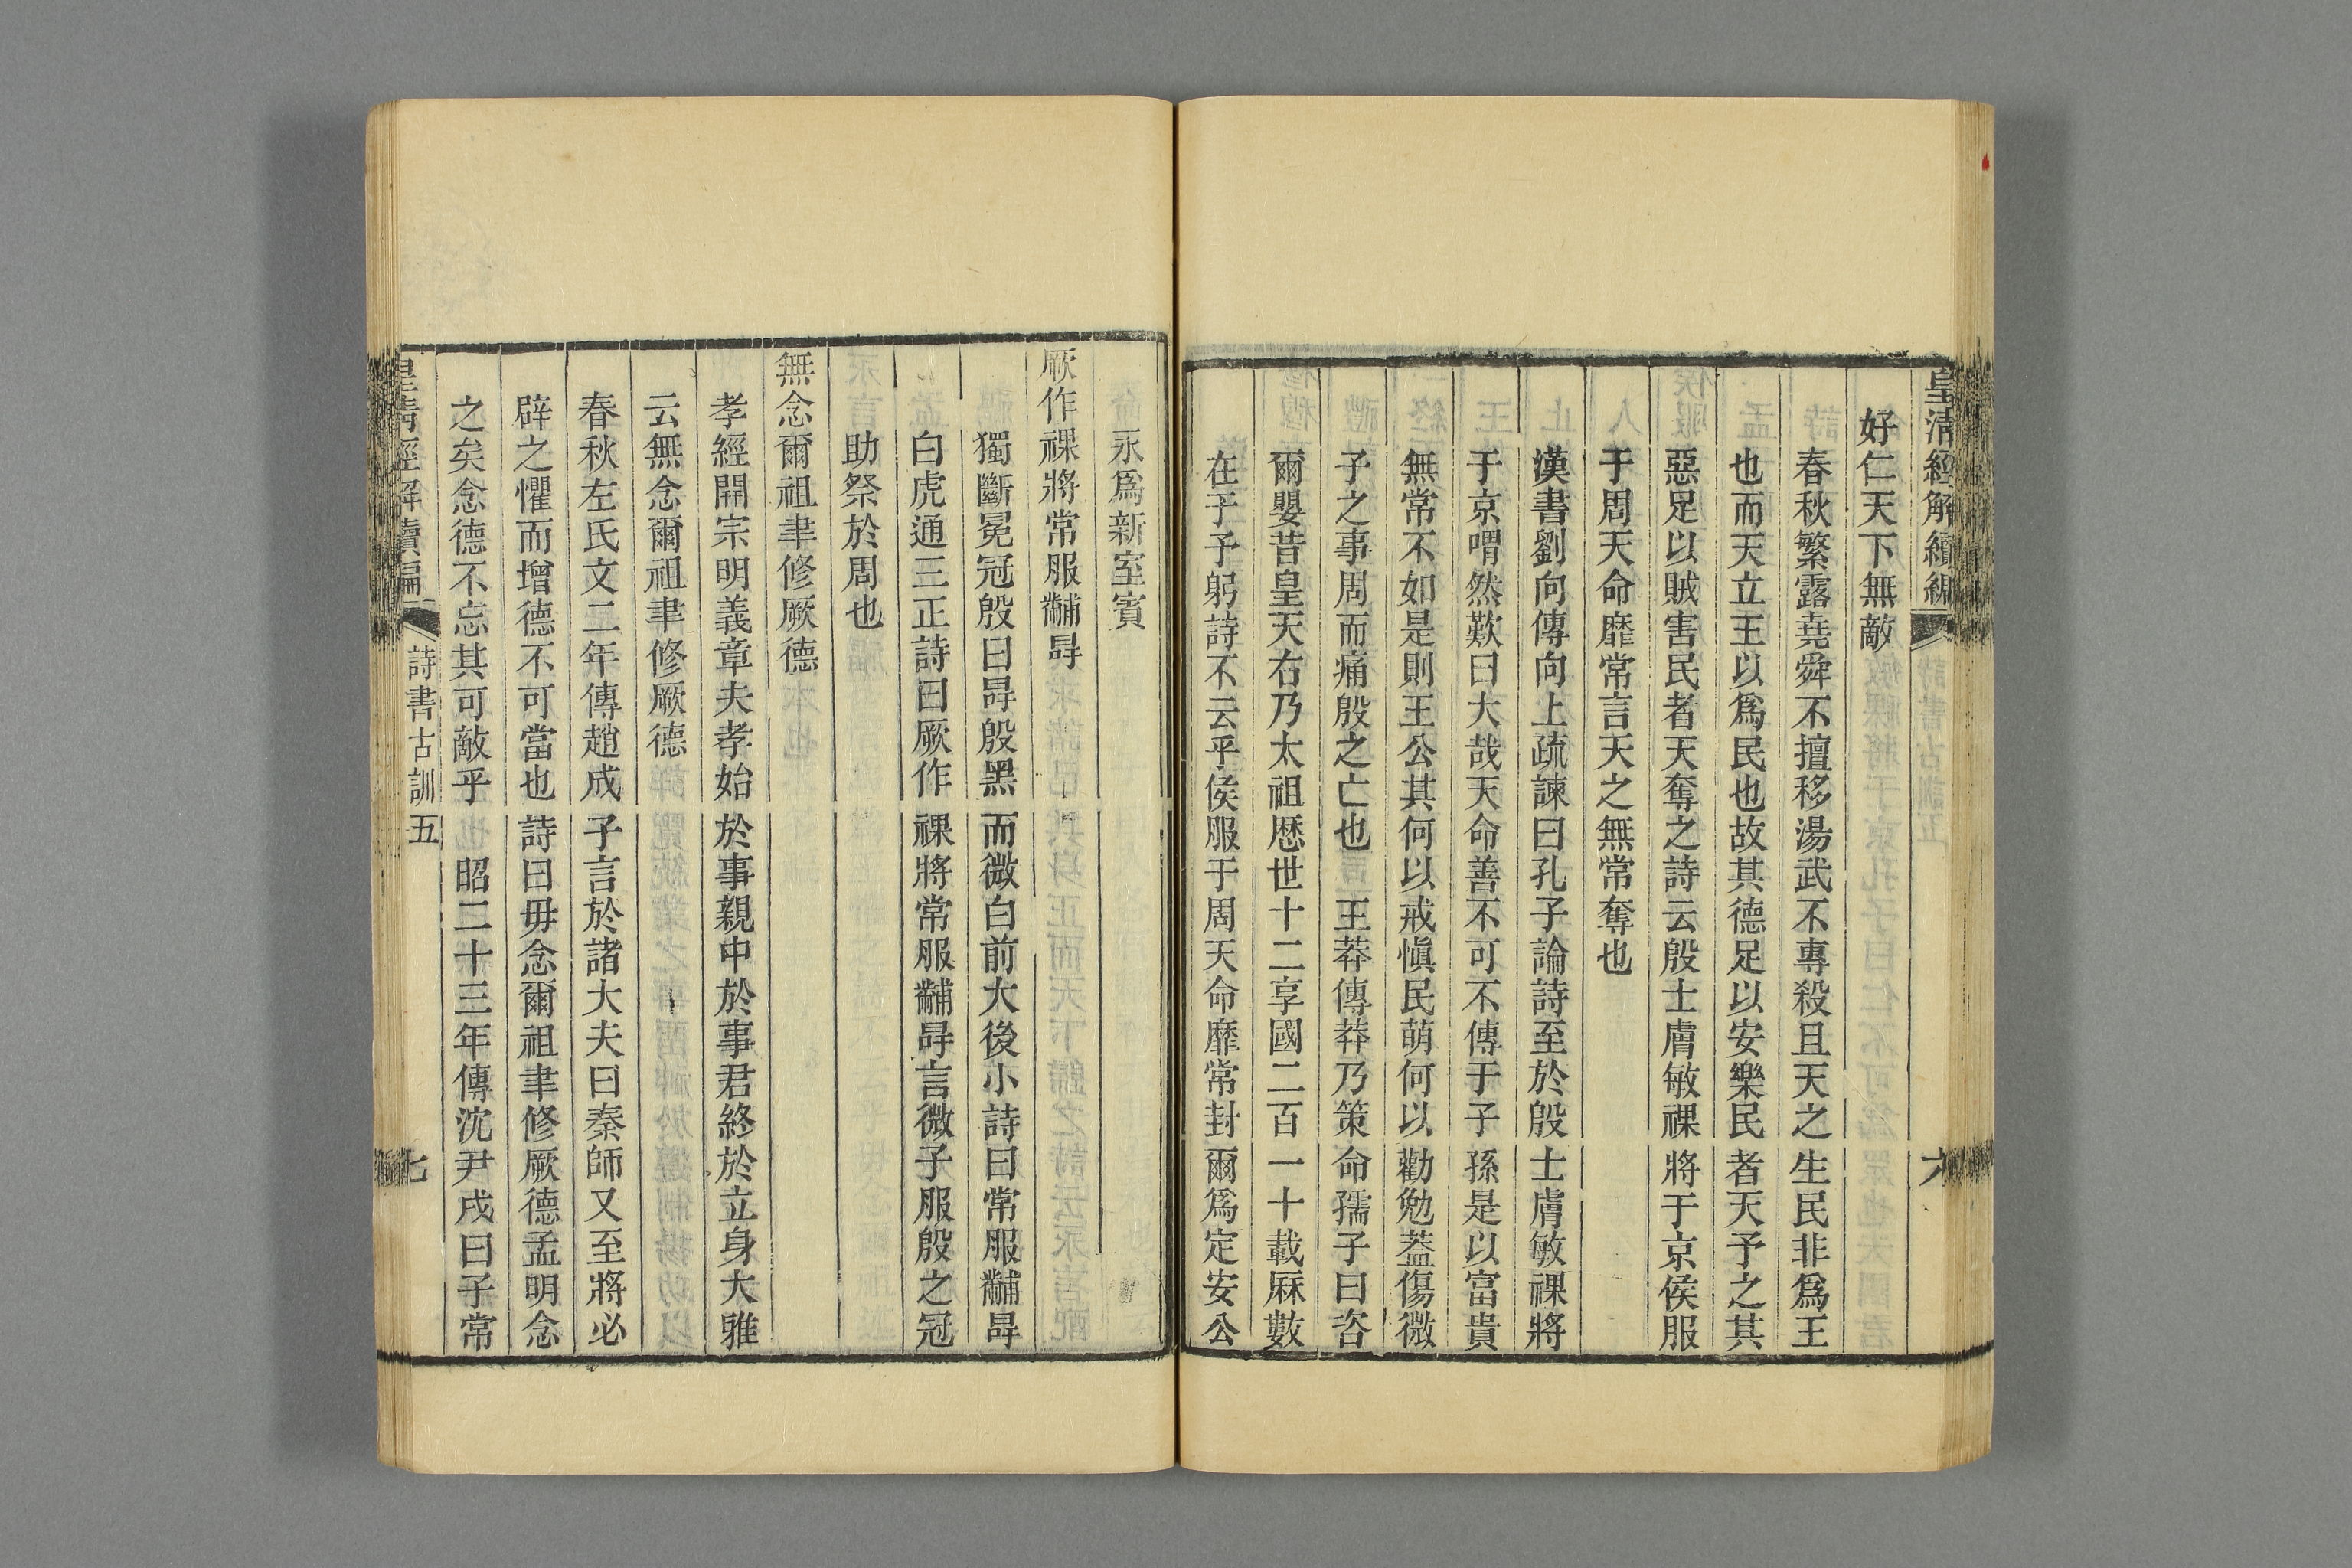 皇清經解續編
六
好仁天下無敵
春秋繁露堯舜不擅移湯武不專殺且天之生民非爲王
也而天立王以爲民也故其德足以安樂民者天予之其
惡足以賊害民者天奪之詩云殷士膚敏祼將于京侯服
于周天命靡常言天之無常奪也
漢書劉向傳向上疏諫曰孔子論詩至於殷士膚敏祼將
于京喟然歎曰大哉天命善不可不傳于子孫是以富貴
無常不如是則王公其何以戒愼民萌何以勸勉蓋傷微
子之事周而痛殷之亡也　王莽傳莽乃策命孺子曰咨
爾嬰昔皇天右乃太祖厯世十二享國二百一十載厤數
在于予躬詩不云乎侯服于周天命靡常封爾爲定安公
永爲新室賓
厥作祼將常服黼冔
獨斷冕冠殷曰冔殷黑而微白前大後小詩曰常服黼冔
白虎通三正詩曰厥作祼將常服黼冔言微子服殷之冠
助祭於周也
無念爾祖聿修厥德
孝經開宗明義章夫孝始於事親中於事君終於立身大雅
云無念爾祖聿修厥德
春秋左氏文二年傳趙成子言於諸大夫曰秦師又至將必
辟之懼而增德不可當也詩曰毋念爾祖聿修厥德孟明念
之矣念德不忘其可敵乎　昭二十三年傳沈尹戌曰子常
皇清經解續編
詩書古訓五
七